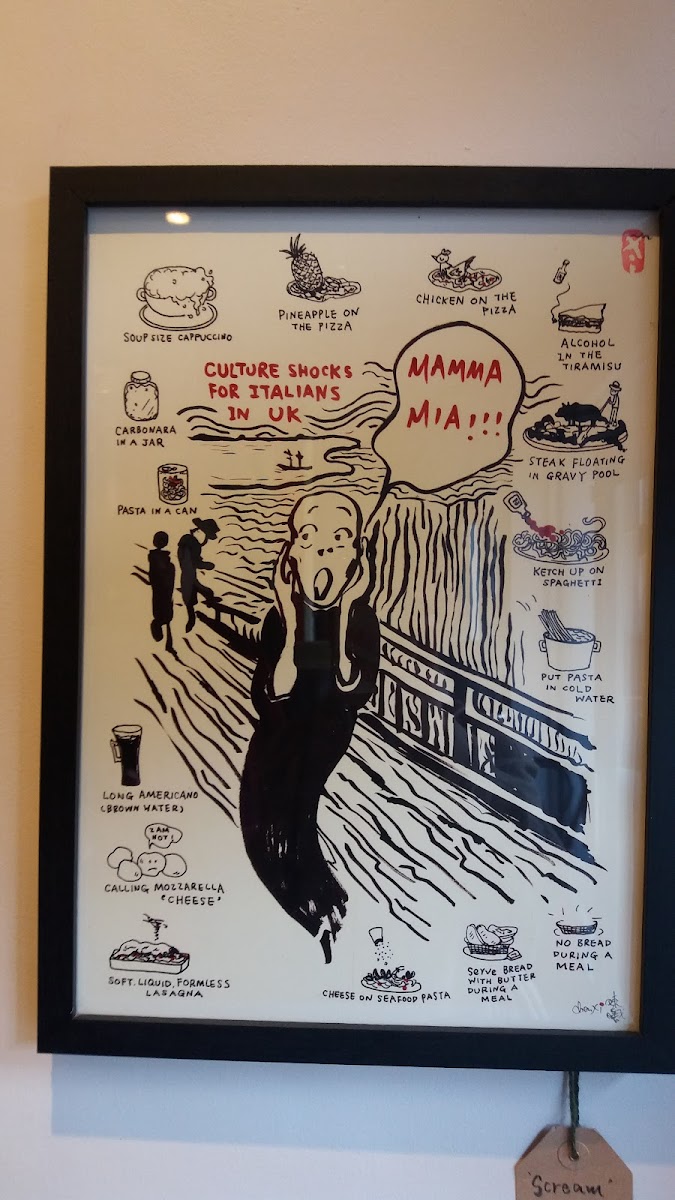 SOUP SIZE CAPPUCCINO
PINEAPPLE ON
THE PIZZA
CHICKEN ON THE
PIZZA
ALCOHOL
IN THE
TIRAMISU
CULTURE SHOCKS
FOR ITALIANS
IN UK
MAMMA
MIA!!!
CARBONARA
IN A JAR
STEAK FLOATING
IN GRAVY POOL
PASTA IN A CAN
KETCH UP ON
SPAGHETTI
PUT PASTA
IN COLD
WATER
LONG AMERICANO
(BROWN WATER)
I AM
NOT!
CALLING MOZZARELLA
"CHEESE"
SOFT. LIQUID, FORMLESS
LASAGNA
CHEESE ON SEAFOOD PASTA
SERVE BREAD
WITH BUTTER
DURING A
MEAL
NO BREAD
DURING A
MEAL
"Scream"